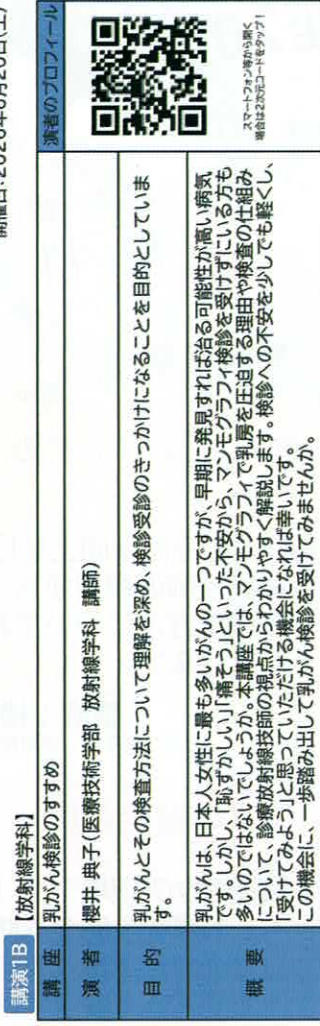 開催日：2026年6月20日(土)
講演1B 【放射線学科】
講座 乳がん検診のすすめ 演者のプロフィール
演者 櫻井 典子(医療技術学部 放射線学科 講師)
目的 乳がんとその検査方法について理解を深め、検診受診のきっかけになることを目的としていま
す。
概要 乳がんは、日本人女性に最も多いがんの一つですが、早期に発見すれば治る可能性が高い病気
です。しかし、「恥ずかしい」「痛そう」といった不安から、マンモグラフィ検診を受けずにいる方も
多いのではないでしょうか。本講座では、マンモグラフィで乳房を圧迫する理由や検査の仕組み
について、診療放射線技師の視点からわかりやすく解説します。検診への不安を少しでも軽くし、
「受けてみよう」と思っていただける機会になれば幸いです。
この機会に、一歩踏み出して乳がん検診を受けてみませんか。
スマートフォン等から開く
場合は2次元コードをタップ！